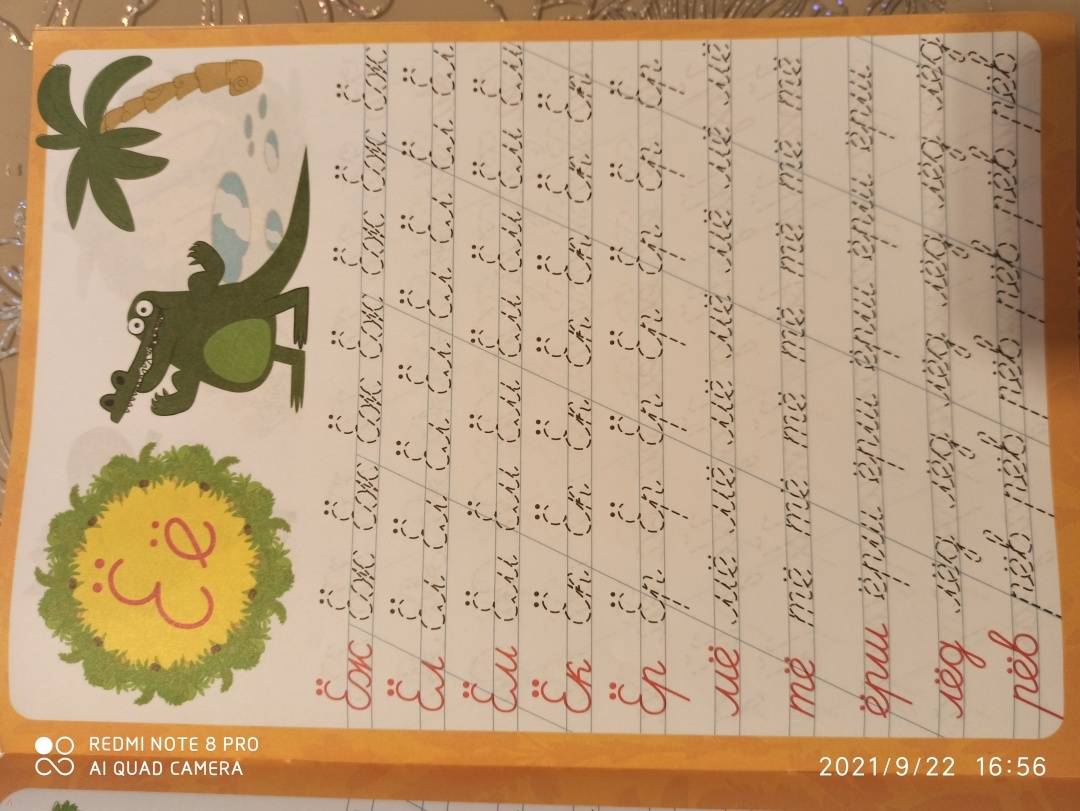 Ё ё
Ёж Ёж Ёж Ёж Ёж Ёж Ёж Ёж
Ёл Ёл Ёл Ёл Ёл Ёл Ёл Ёл Ёл
Ём Ём Ём Ём Ём Ём Ём Ём
Ёк Ёк Ёк Ёк Ёк Ёк Ёк Ёк
Ёр Ёр Ёр Ёр Ёр Ёр Ёр Ёр
мё мё мё мё мё мё мё мё
тё тё тё тё тё тё тё тё
ёрш ёрш ёрш ёрш ёрш ёрш ёрш
лёд лёд лёд лёд лёд лёд лёд
рёв рёв рёв рёв рёв рёв рёв
REDMI NOTE 8 PRO
AI QUAD CAMERA
2021/9/22 16:56